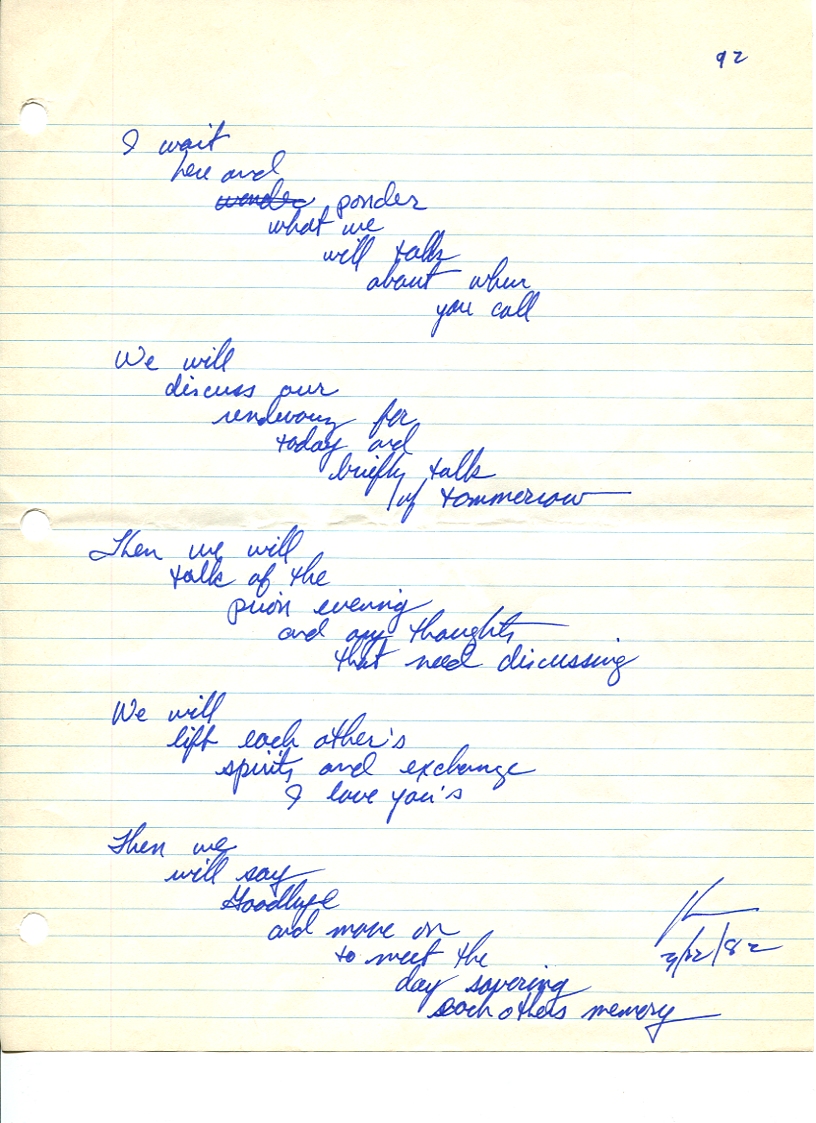 92
I wait
here and
wonder ponder
what we
will talk
about when
you call
We will
discuss our
rendevouz for
today and
briefly talk
of tommorrow
Then we will
talk of the
prior evening
and any thoughts
that need discussing
We will
lift each other's
spirits and exchange
I love you's
Then we
will say
Goodbye
and move on
to meet the
day savering
each others memory
3/22/82